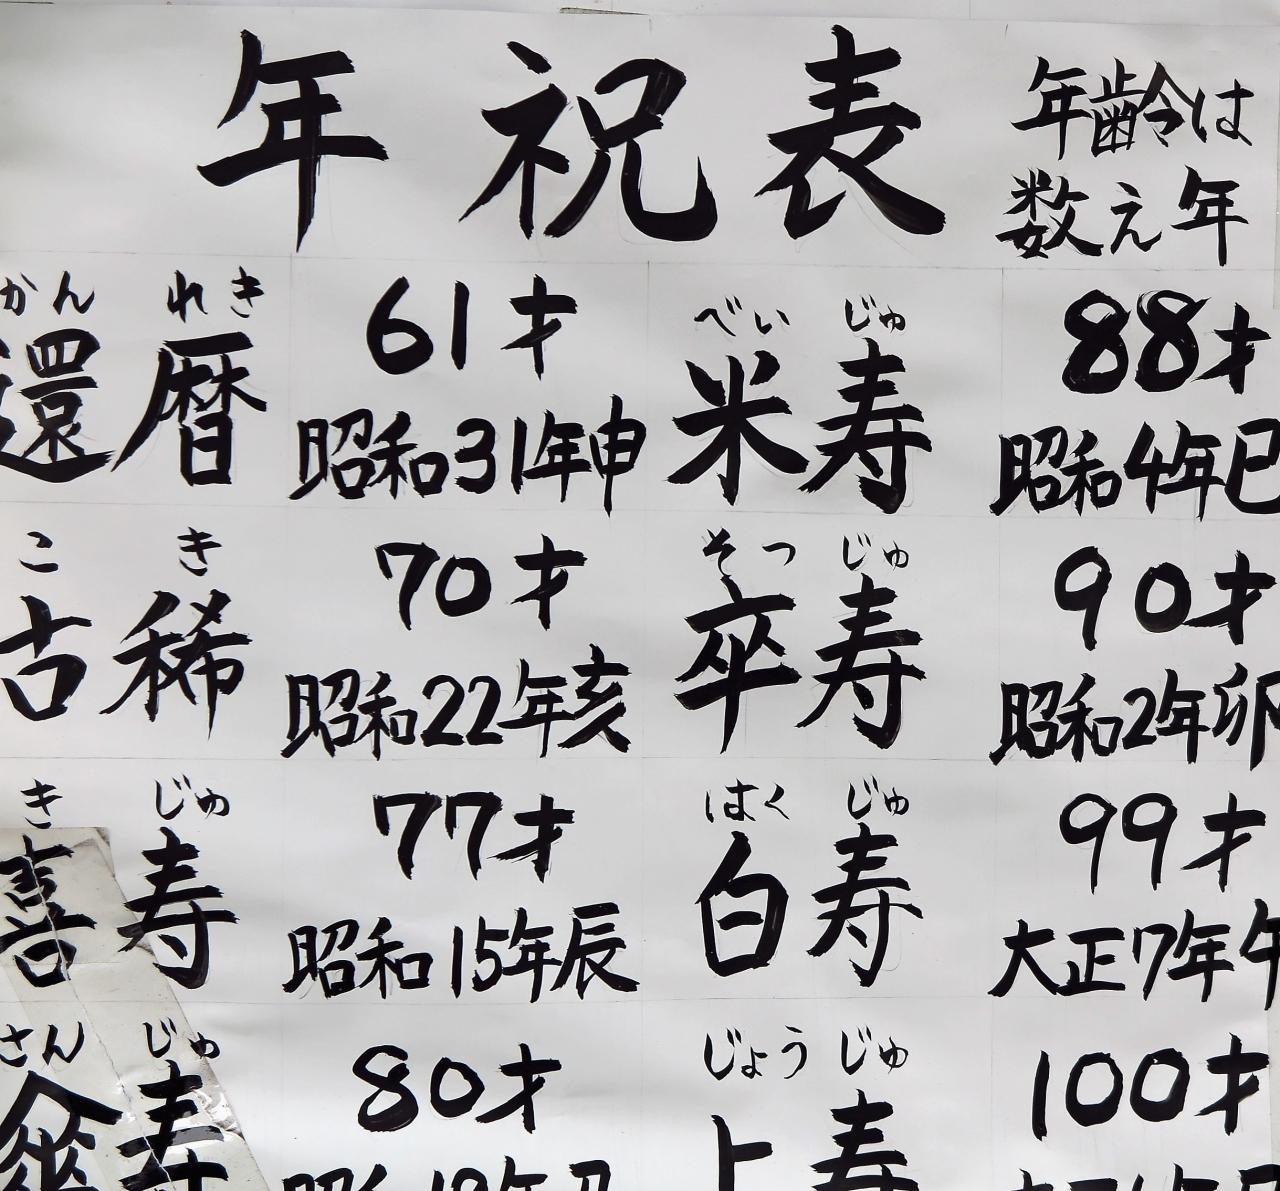 年祝表
年齢は
数え年
かん れき
還暦
61才
昭和31年申
べい じゅ
米寿
88才
昭和4年巳
こ き
古稀
70才
昭和22年亥
そつ じゅ
卒寿
90才
昭和2年卯
き じゅ
喜寿
77才
昭和15年辰
はく じゅ
白寿
99才
大正7年午
さん じゅ
傘寿
80才
じょう じゅ
上寿
100才